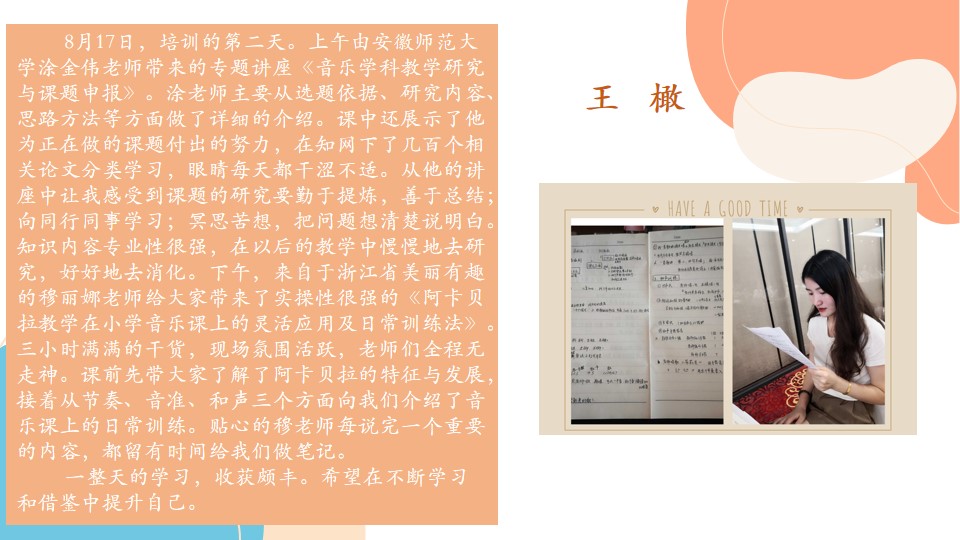 8月17日，培训的第二天。上午由安徽师范大
学涂金伟老师带来的专题讲座《音乐学科教学研究
与课题申报》。涂老师主要从选题依据、研究内容、
思路方法等方面做了详细的介绍。课中还展示了他
为正在做的课题付出的努力，在知网下了几百个相
关论文分类学习，眼睛每天都干涩不适。从他的讲
座中让我感受到课题的研究要勤于提炼，善于总结；
向同行同事学习；冥思苦想，把问题想清楚说明白。
知识内容专业性很强，在以后的教学中慢慢地去研
究，好好地去消化。下午，来自于浙江省美丽有趣
的穆丽娜老师给大家带来了实操性很强的《阿卡贝
拉教学在小学音乐课上的灵活应用及日常训练法》。
三小时满满的干货，现场氛围活跃，老师们全程无
走神。课前先带大家了解了阿卡贝拉的特征与发展，
接着从节奏、音准、和声三个方面向我们介绍了音
乐课上的日常训练。贴心的穆老师每说完一个重要
的内容，都留有时间给我们做笔记。
一整天的学习，收获颇丰。希望在不断学习
和借鉴中提升自己。
王 橄
HAVE A GOOD TIME